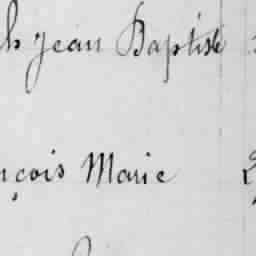 h Jean Baptiste
nçois Marie